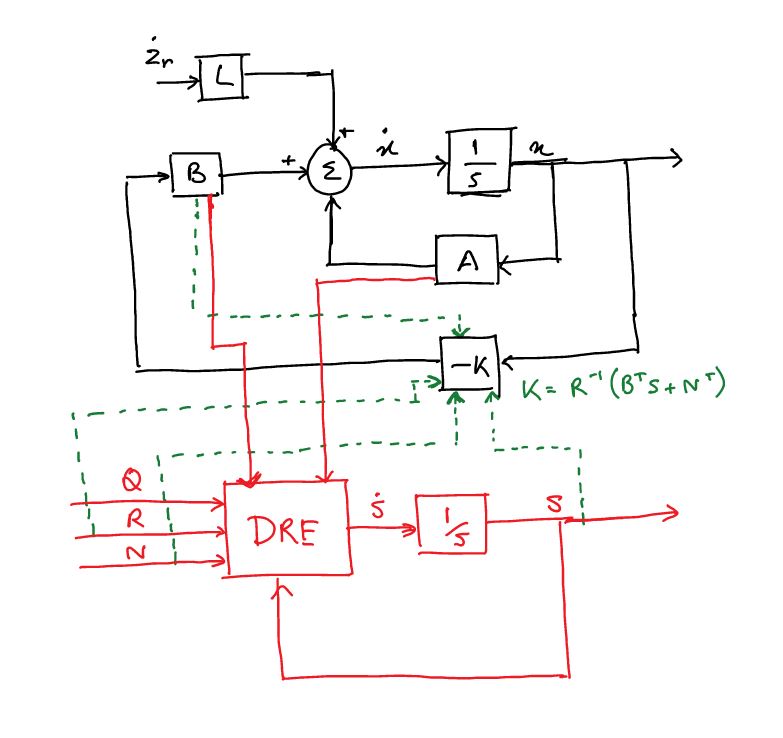 ż_r
L
+
B
+
Σ
ẋ
1/s
x
A
-K
K = R⁻¹(BᵀS + Nᵀ)
Q
R
N
DRE
Ṡ
1/s
S